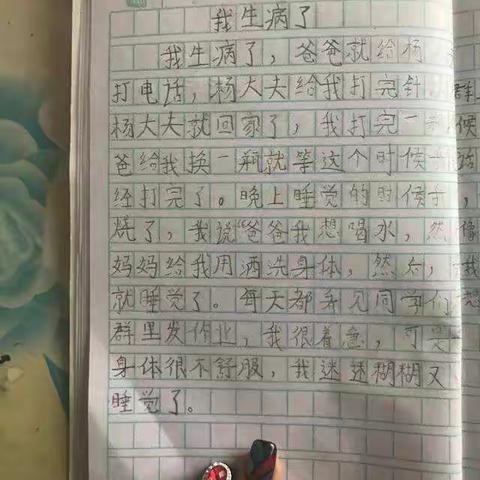 我生病了
我生病了，爸爸就给杨
打电话，杨大夫给我打完针
杨大夫就回家了，我打完一
爸给我换一瓶就等这个时候
经打完了。晚上睡觉的时候
烧了，我说“爸爸我想喝水，然
妈妈给我用酒洗身体，然后，我
就睡觉了。每天都看见同学们
群里发作业，我很着急，可是
身体很不舒服，我迷迷糊糊又
睡觉了。